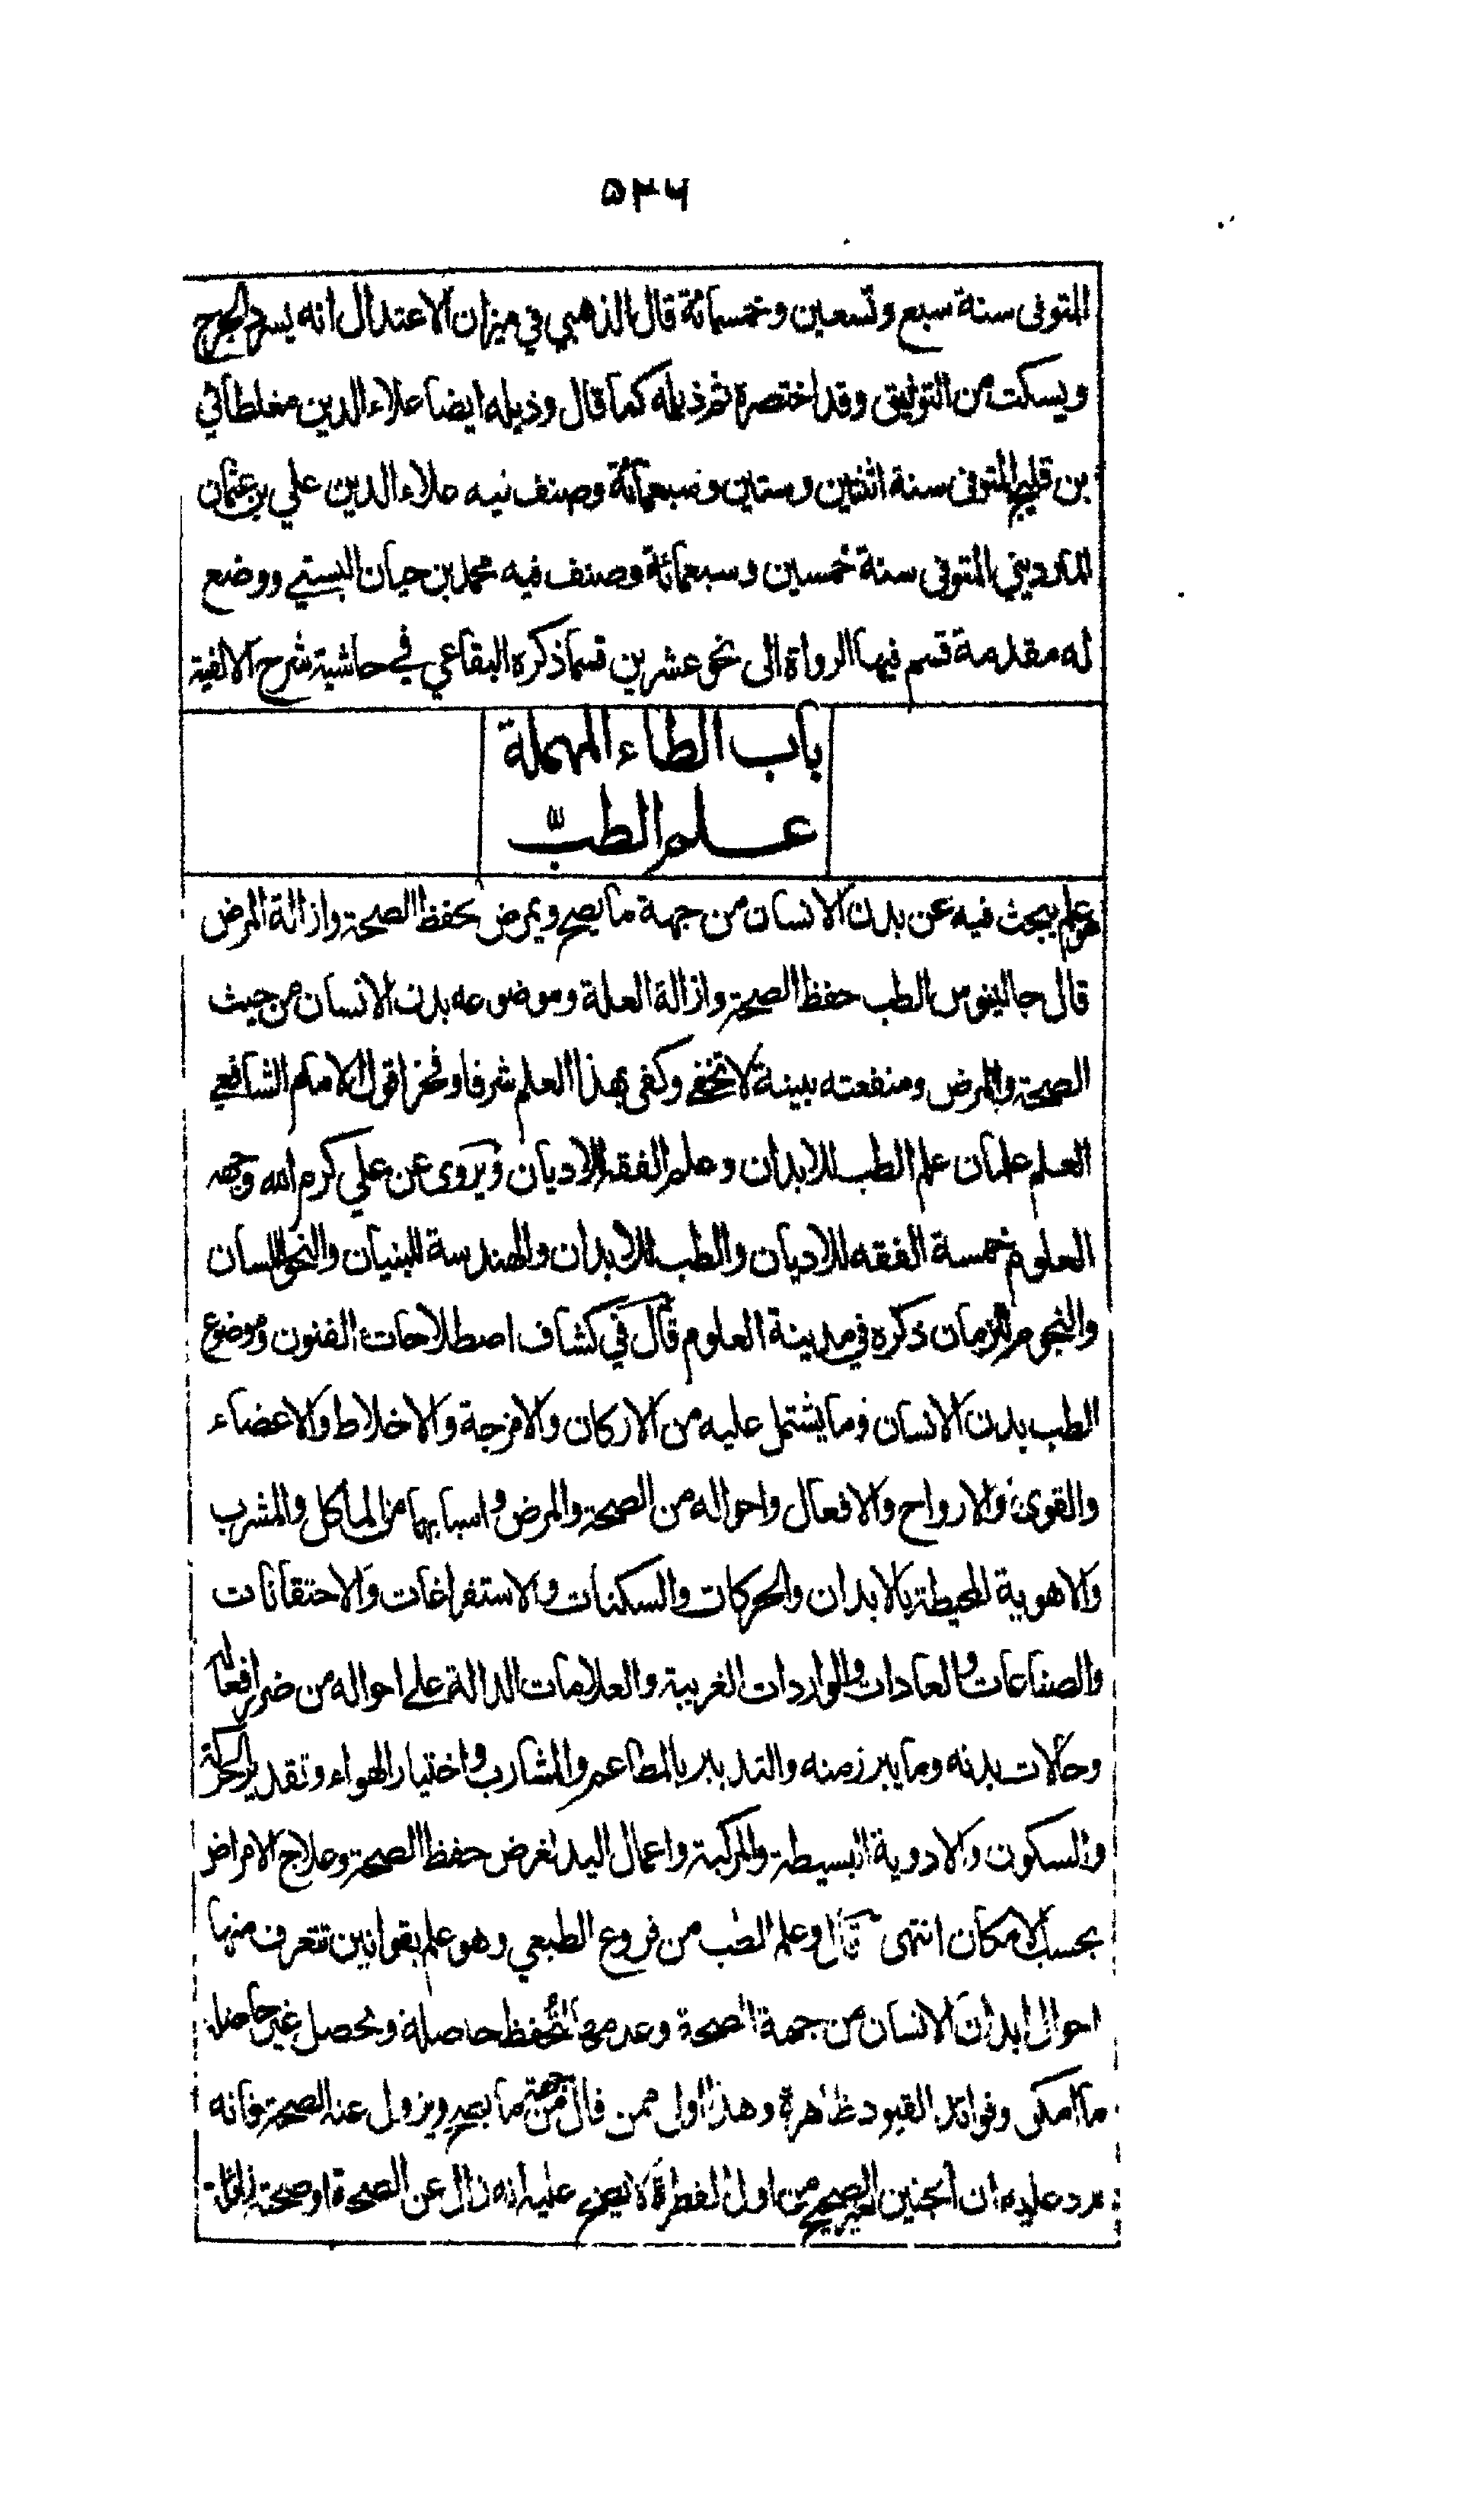 ۵۳۶
المتوفى سنة سبع وتسعين وخمسمائة قال الذهبي في ميزان الاعتدال انه يسرد الجرح
ويسكت من التوثيق وقد اختصره ثم ذيله كما قال وذيله ايضا علاء الدين مغلطائي
بن قليج المتوفى سنة اثنتين وستين وسبعمائة وصنف فيه علاء الدين علي بن عثمان
المارديني المتوفى سنة خمسين وسبعمائة وصنف فيه محمد بن حبان البستي ووضع
له مقدمة قسم فيها الرواة الى نحو عشرين قسما ذكره البقاعي في حاشية شرح الالفية
باب الطاء المهملة
علم الطب
هو علم يبحث فيه عن بدن الانسان من جهة ما يصح ويمرض بحفظ الصحة وازالة المرض
قال جالينوس الطب حفظ الصحة وازالة العلة وموضوعه بدن الانسان من حيث
الصحة والمرض ومنفعته بينة لا تخفى وكفى بهذا العلم شرفا وفخرا قول الامام الشافعي
العلم علمان علم الطب للابدان وعلم الفقه للاديان ويروى عن علي كرم الله وجهه
العلوم خمسة الفقه للاديان والطب للابدان والهندسة للبنيان والنحو للسان
والنجوم للزمان ذكره في مدينة العلوم قال في كشاف اصطلاحات الفنون وموضوع
الطب بدن الانسان وما يشتمل عليه من الاركان والامزجة والاخلاط والاعضاء
والقوى والارواح والافعال واحواله من الصحة والمرض واسبابهما من المأكل والمشرب
والاهوية المحيطة بالابدان والحركات والسكنات والاستفراغات والاحتقانات
والصناعات والعادات والواردات الغريبة والعلامات الدالة على احواله من ضرر افعاله
وحالات بدنه وما يبرز منه والتدبير بالمطاعم والمشارب واختيار الهواء وتقدير الحركة
والسكون والادوية البسيطة والمركبة واعمال اليد لغرض حفظ الصحة وعلاج الامراض
بحسب الامكان انتهى قال وعلم الطب من فروع الطبعي وهو علم بقوانين تتعرف منها
احوال ابدان الانسان من جهة الصحة وعدمها لتحفظ حاصلة وتحصل غير حاصلة
ما امكن وفوائد القيود ظاهرة وهذا اولى ممن قال من جهة ما يصح ويزول عنه الصحة فانه
يرد عليه ان الجنين الغير الصحيح من اول الفطرة لا يصح عليه انه زال عن الصحة او صحته زائلة